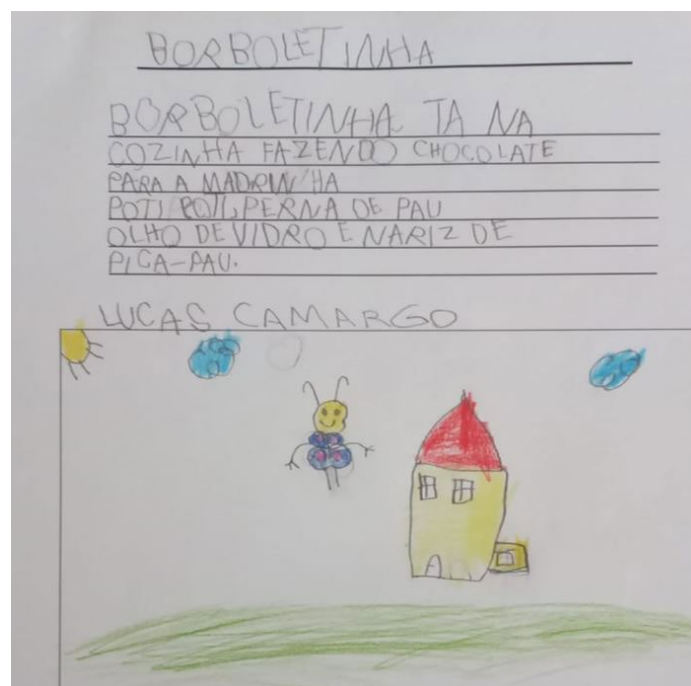 BORBOLETINHA
BORBOLETINHA TA NA
COZINHA FAZENDO CHOCOLATE
PARA A MADRINHA
POTI POTI, PERNA DE PAU
OLHO DE VIDRO E NARIZ DE
PICA-PAU.
LUCAS CAMARGO